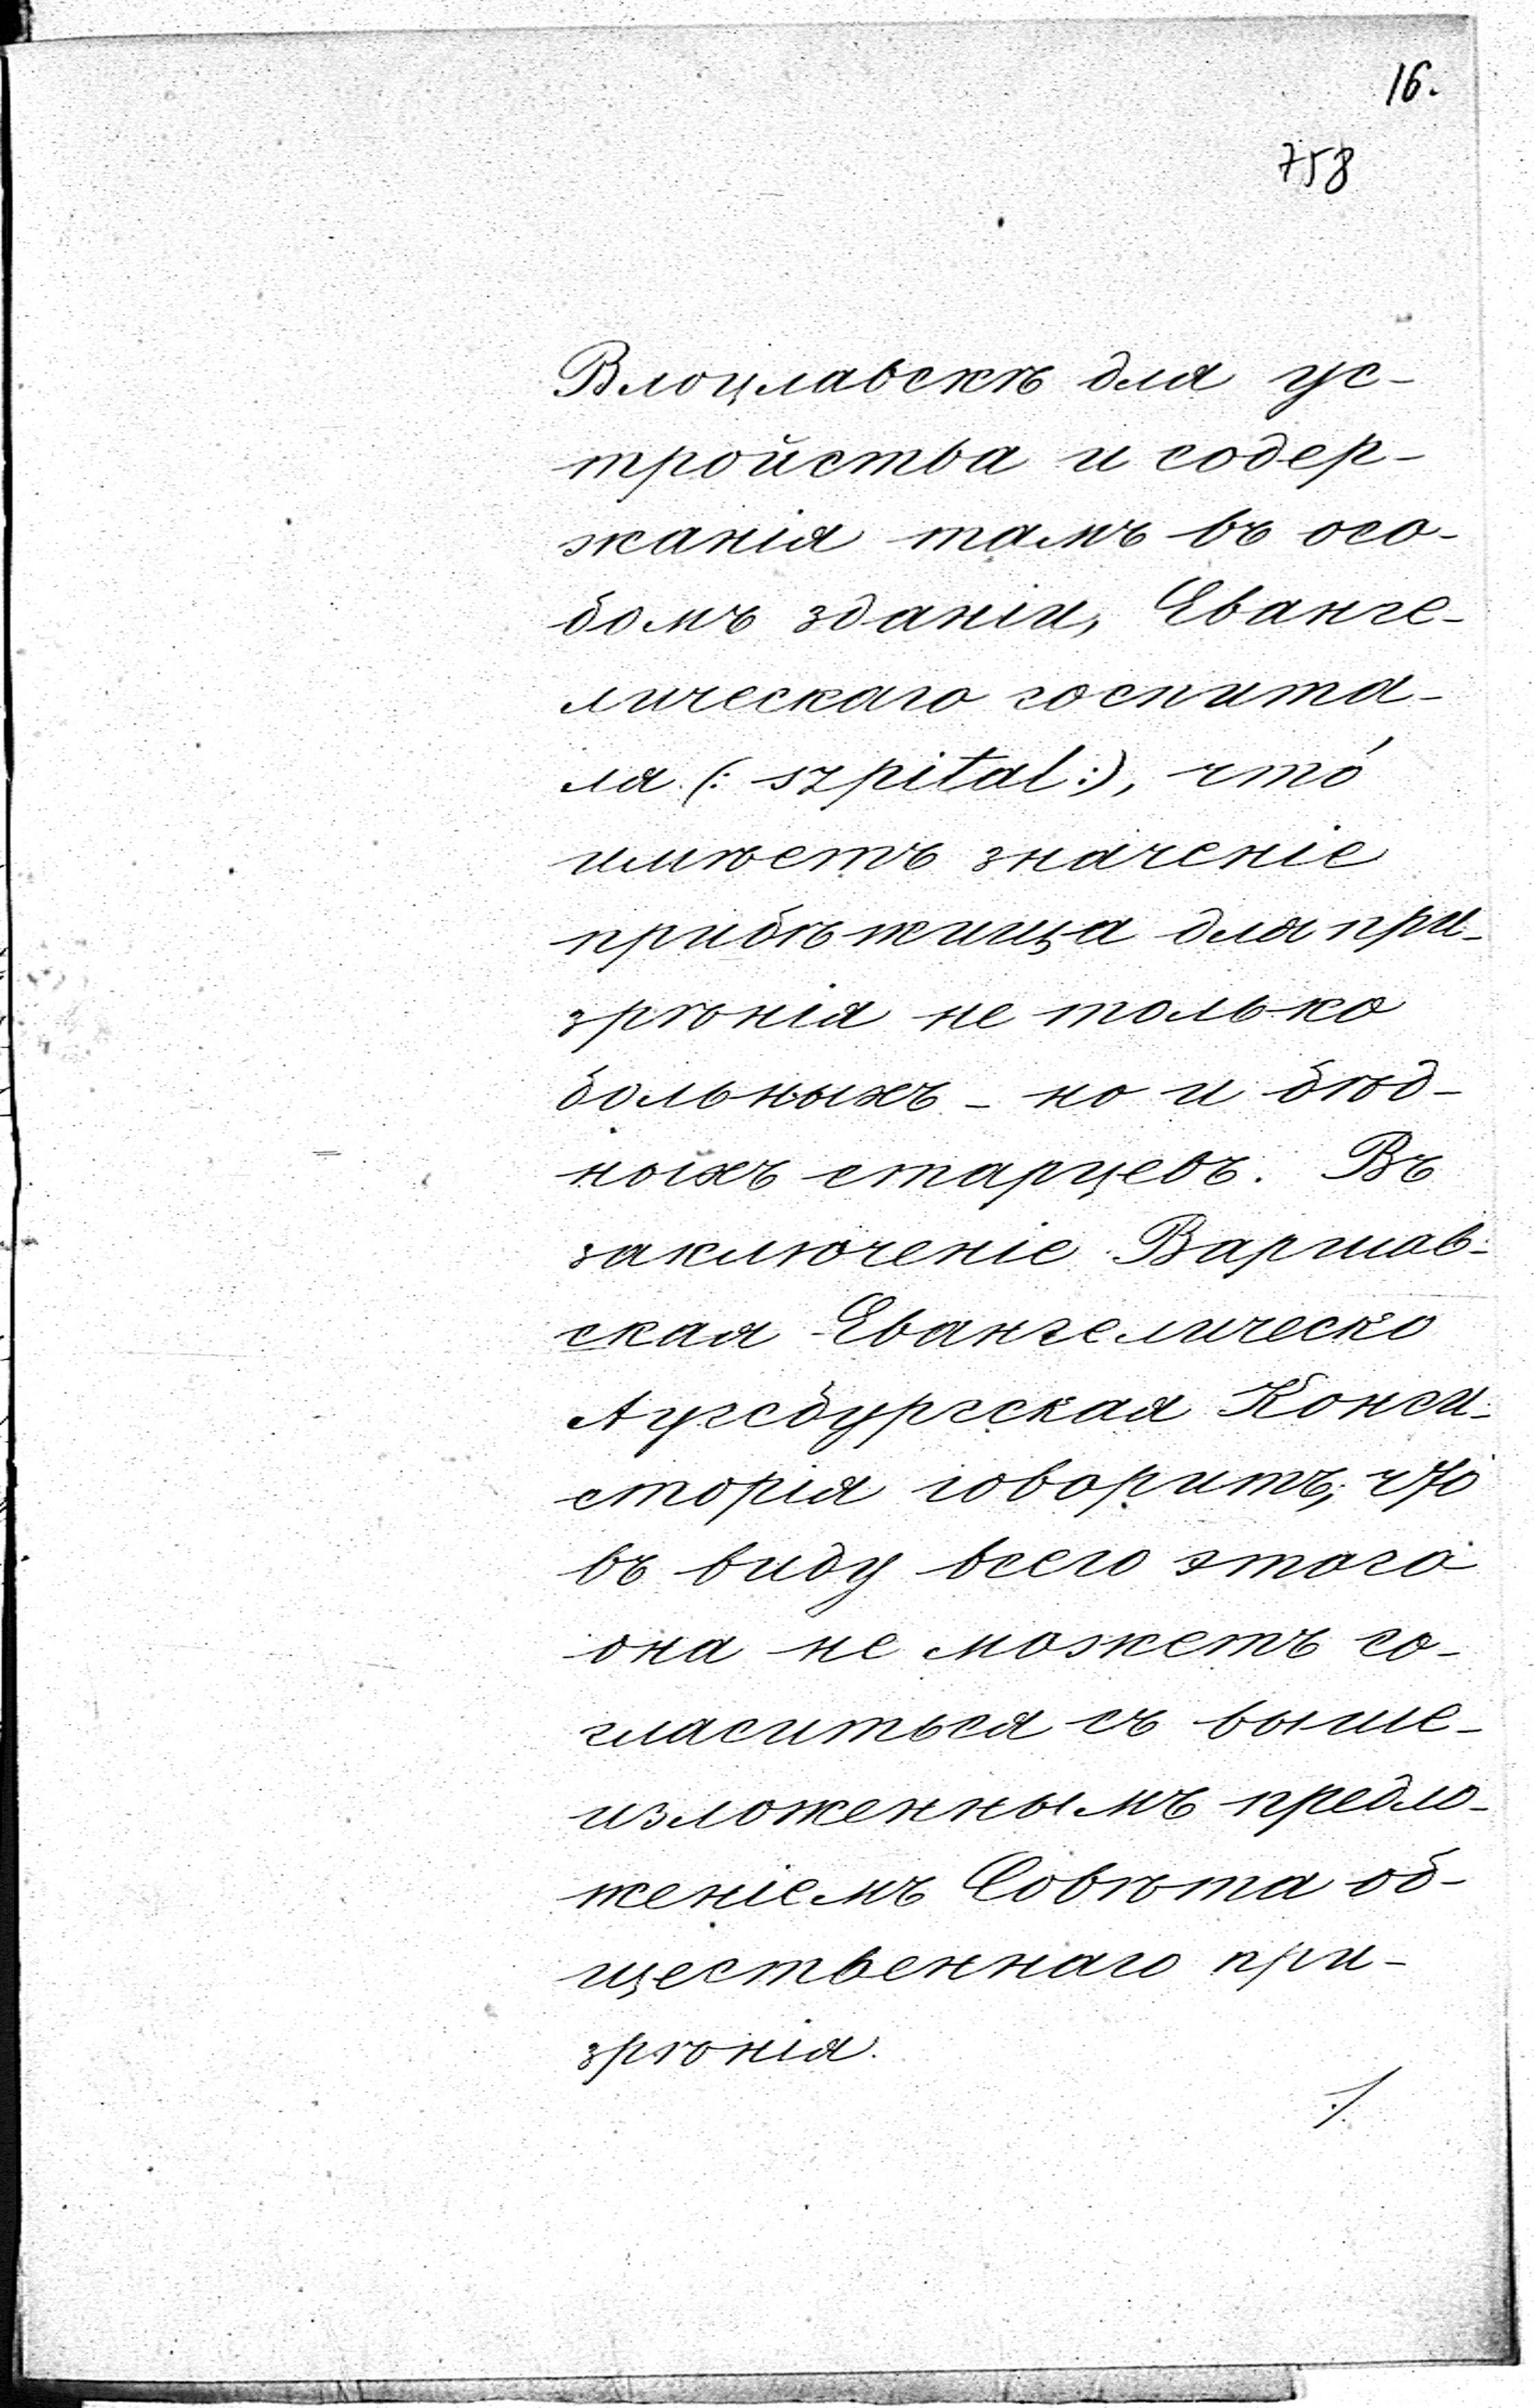 16.
758
Влоцлавскѣ для ус-
тройства и содер-
жанія тамъ въ осо-
бомъ зданіи, Еванге-
лическаго госпита-
ля (: szpital :), что́
имѣетъ значеніе
прибѣжища для при-
зрѣнія не только
больныхъ - но и бѣд-
ныхъ старцевъ. Въ
заключеніе Варшав-
ская Евангелическо
Аугсбургская Конси-
сторія говоритъ, что
въ виду всего этого
она не можетъ со-
гласиться съ выше-
изложеннымъ предло-
женіемъ Совѣта об-
щественнаго при-
зрѣнія.
./.